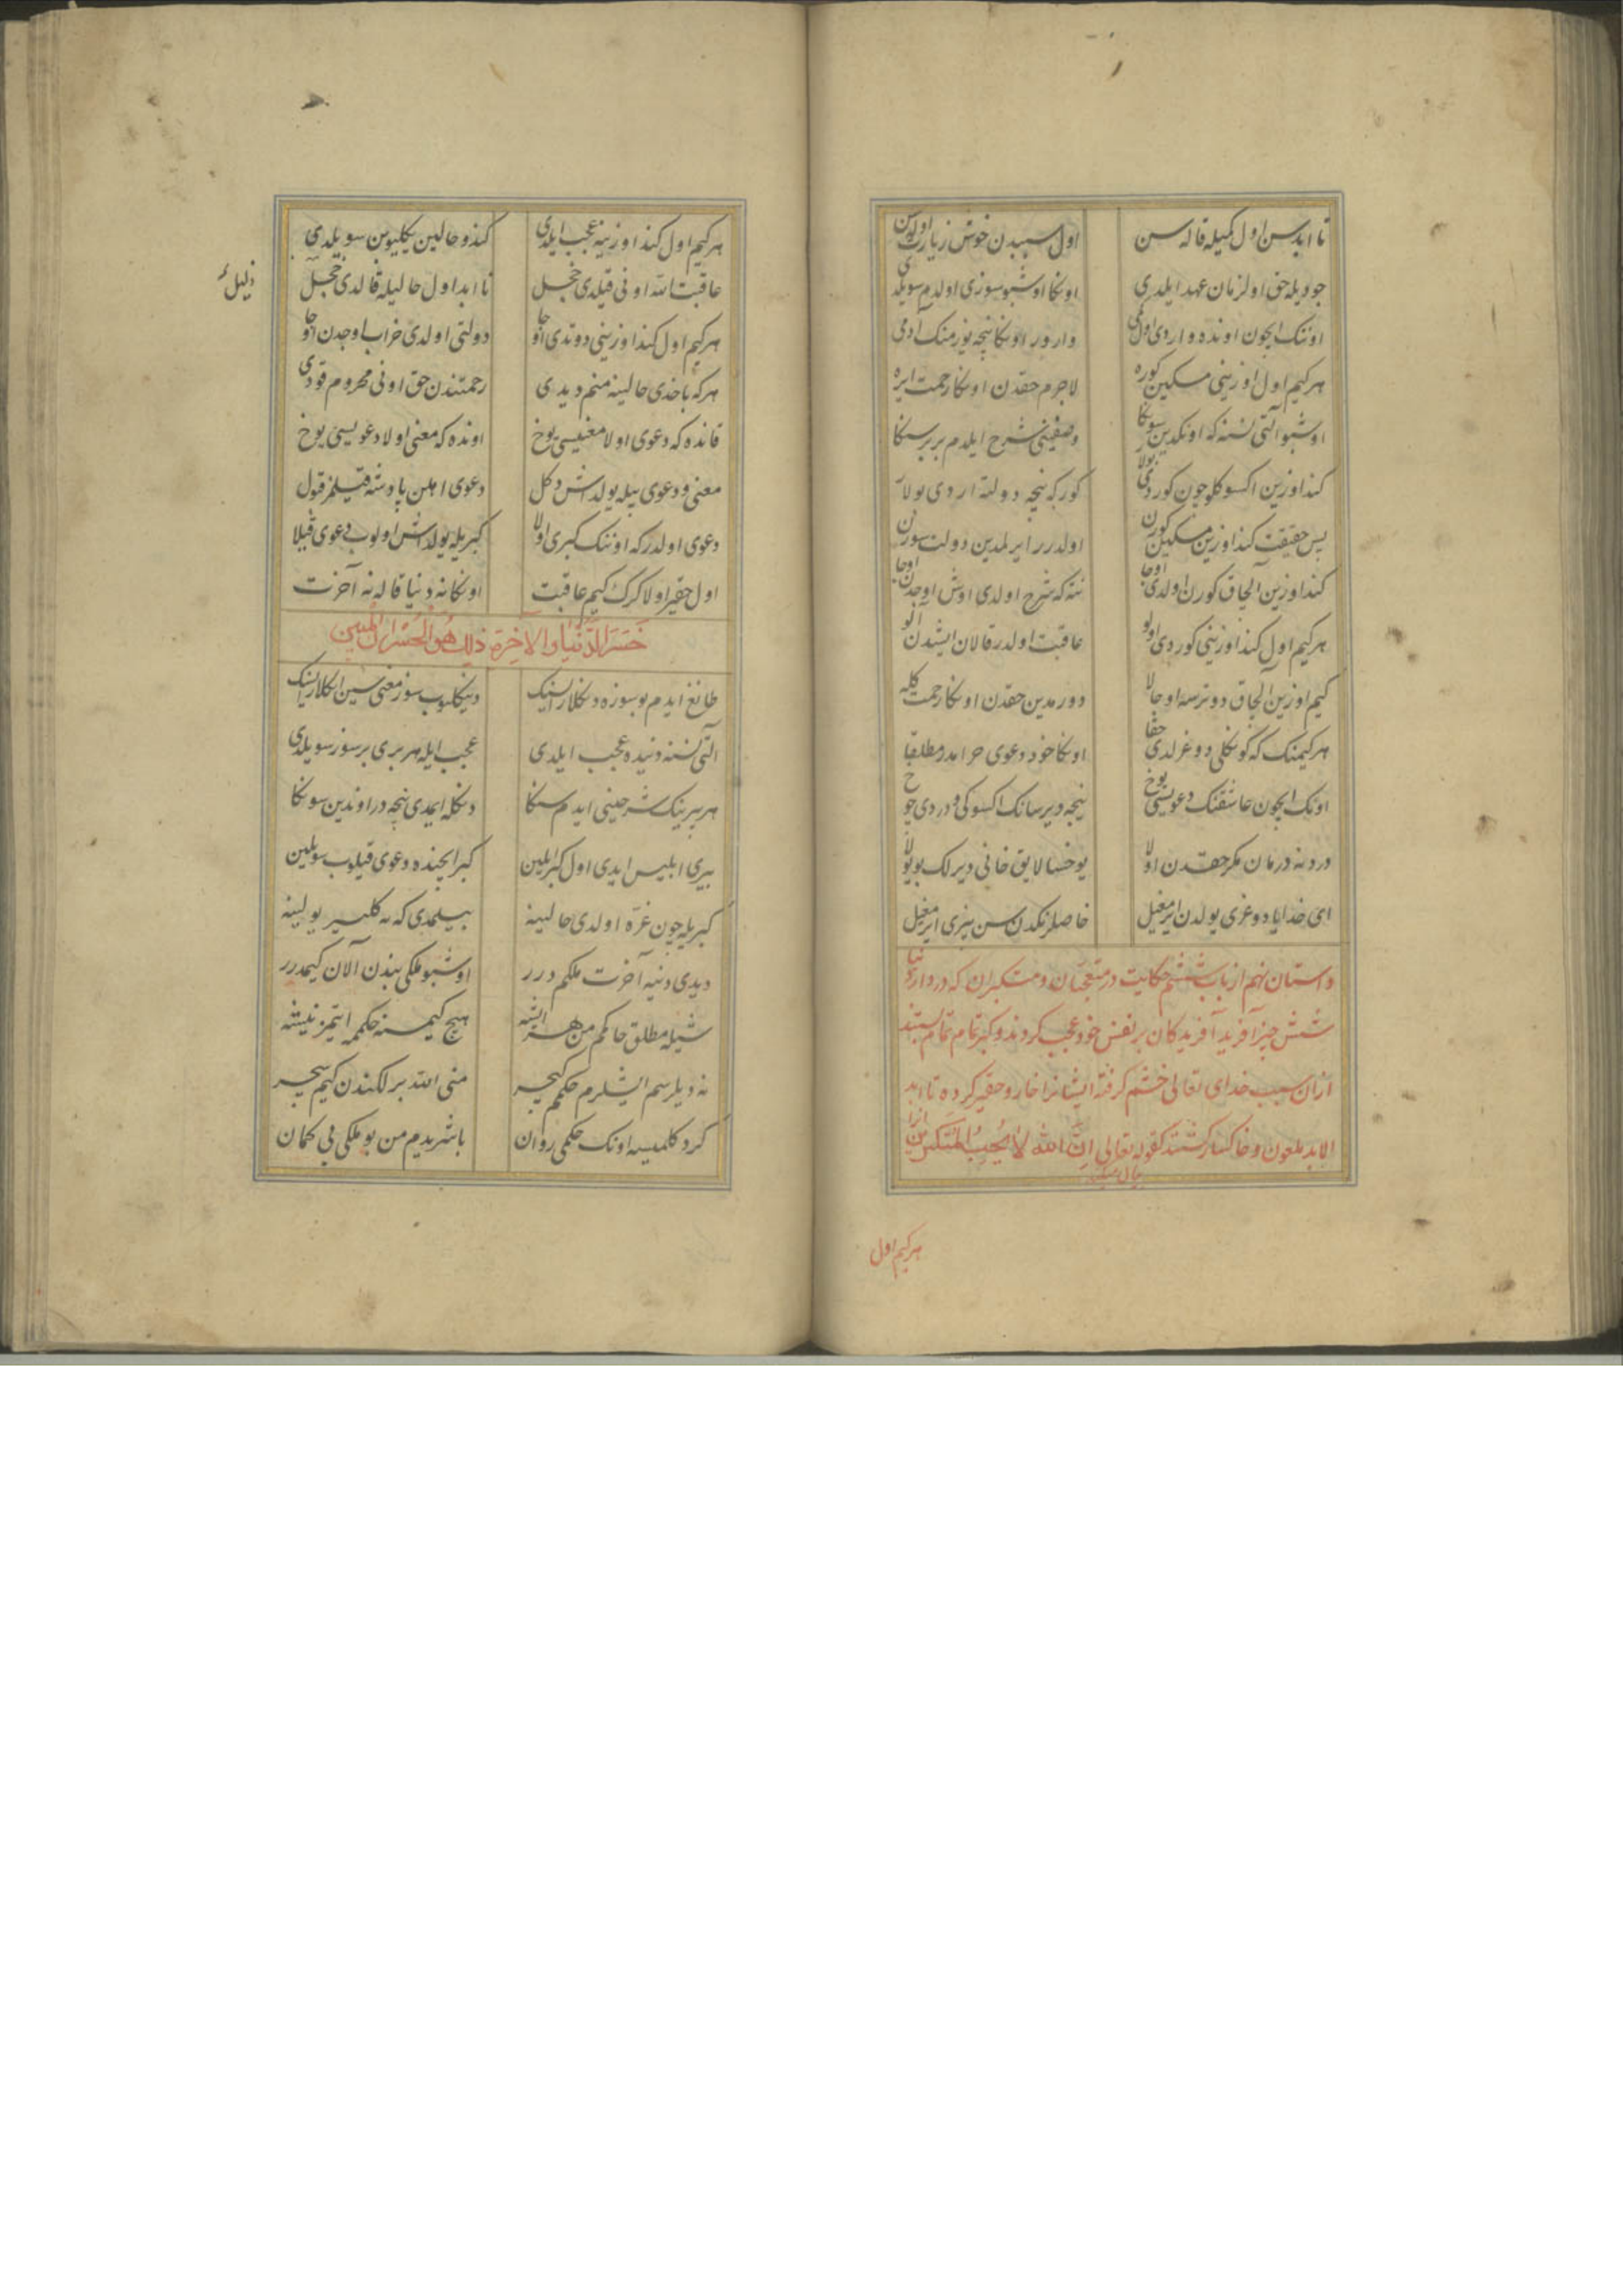 تا ابد سن اول کمیله قاله سن اول سببدن خوش زیارت اوله سن
چو دیله حق اول زمان عهد ایلدی اونکا اوشبو سوزی اولدم سویلدی
اوننک ایچون اونده واردی اول نمی وارور اونکا نیچه یوز منک آدمی
هر کیم اول اوزینی مسکین کوره لاجرم حقدن اونکا رحمت ایره
اوشبو آلتی نسنه که اونکدین سونکا وصفینی شرح ایلدم بر بر سنکا
کنداوزین اکسوکلو چون کوردی بولار کور که نیچه دولته اردی بولار
پس حقیقت کنداوزین مسکین کورن اولدرر ایرلمدین دولت سورن
کنداوزین آلچاق کورن اولدی اوجا نته که شرح اولدی اوش اوجدن اوجا
هر کیم اول کنداوزینی کوردی اولو عاقبت اولدر قالان ایشدن آلو
کیم اوزین آلچاق دوترسه اوجالا دورمدین حقدن اونکا رحمت کله
هر کیمنک که کونکلی دوغرلدی حقا اونکا خود دعوی حرامدر مطلقا
اونک ایچون عاشقنک دعویسی یوخ نیجه دیرسانک اکسوکی و دردی چوخ
درد نه درمان مکر حقدن اولا یوخسا لایق خانی دیرلک بو یولا
ای خدایا دوغری یولدن ایرمغیل خاصلرنکدن سن بیزی ایرمغیل
داستان نهم از باب ششم حکایت در متعجبان و متکبران که در دار دنیا
شش چیز آفرید آفریدکان بر نفس خود عجب کردند و کبر تمام تمام بستند
از ان سبب خدای تعالی خشم کرفته ایشانرا خار و حقیر کرده تا ابد
الاباد ملعون و خاکسار کشتند کقوله تعالی اِنَّ الله لاٰ یُحِبُ الْمُتَکَبِّرینَ
هر کیم اول
هر کیم اول کنداوزینه عجب ایلدی کندو حالین بیلمیوبن سویلدی
عاقبت الله اونی قیلدی خجل تا ابد اول حالیله قالدی خجل
ذلیل
هر کیم اول کنداوزینی دوتدی اوجا دولتی اولدی خراب اوجدن اوجا
هر که باخدی حالینه منم دیدی رحمتندن حق اونی محروم قودی
قانده که دعوی اولا معنیسی یوخ اونده که معنی اولا دعویسی یوخ
معنی و دعوی بیله یولداش دکل دعوی اهلن پادشه قیلمز قبول
دعوی اولدر که اوننک کبری اولا کبریله یولداش اولوب دعوی قیلا
اول حقیر اولا کرک کیم عاقبت اونکا نه دنیا قاله نه آخرت
خَسِرَ الدُّنْیَا وَالاٰخِرَةَ ذٰلِکَ هُوَ الْخُسْرَانُ الْمُبینُ
طانغ ایدم بو سوزه دنکلارایسنک دینکلیوب سوز معنی سین انکلارایسنک
آلتی نسنه دنیده عجب ایلدی عجب ایله هر بری بر سوز سویلدی
هر بیرینک شرحینی ایدم سنکا دنکله ایمدی نیچه در اوندین سونکا
بیری ابلیس ایدی اول کبر ایلین کبر ایچنده دعوی قیلوب سویلین
کبریله چون غرّه اولدی حالینه بیلمدی که نه کلسیر یولینه
دیدی دنیه آخرت ملکم درر اوشبو ملکی بندن آلان کیمدرر
شیله مطلق حاکم من هر ایشه هیچ کیمسنه حکممه ایتمز نیشه
نه دیلرسم ایشلرم حکمم کیچر منی الله بر لکندن کیم سیچر
کرد کلمیسه اونک حکمی روان باشریدم من بو ملکی بی کمان